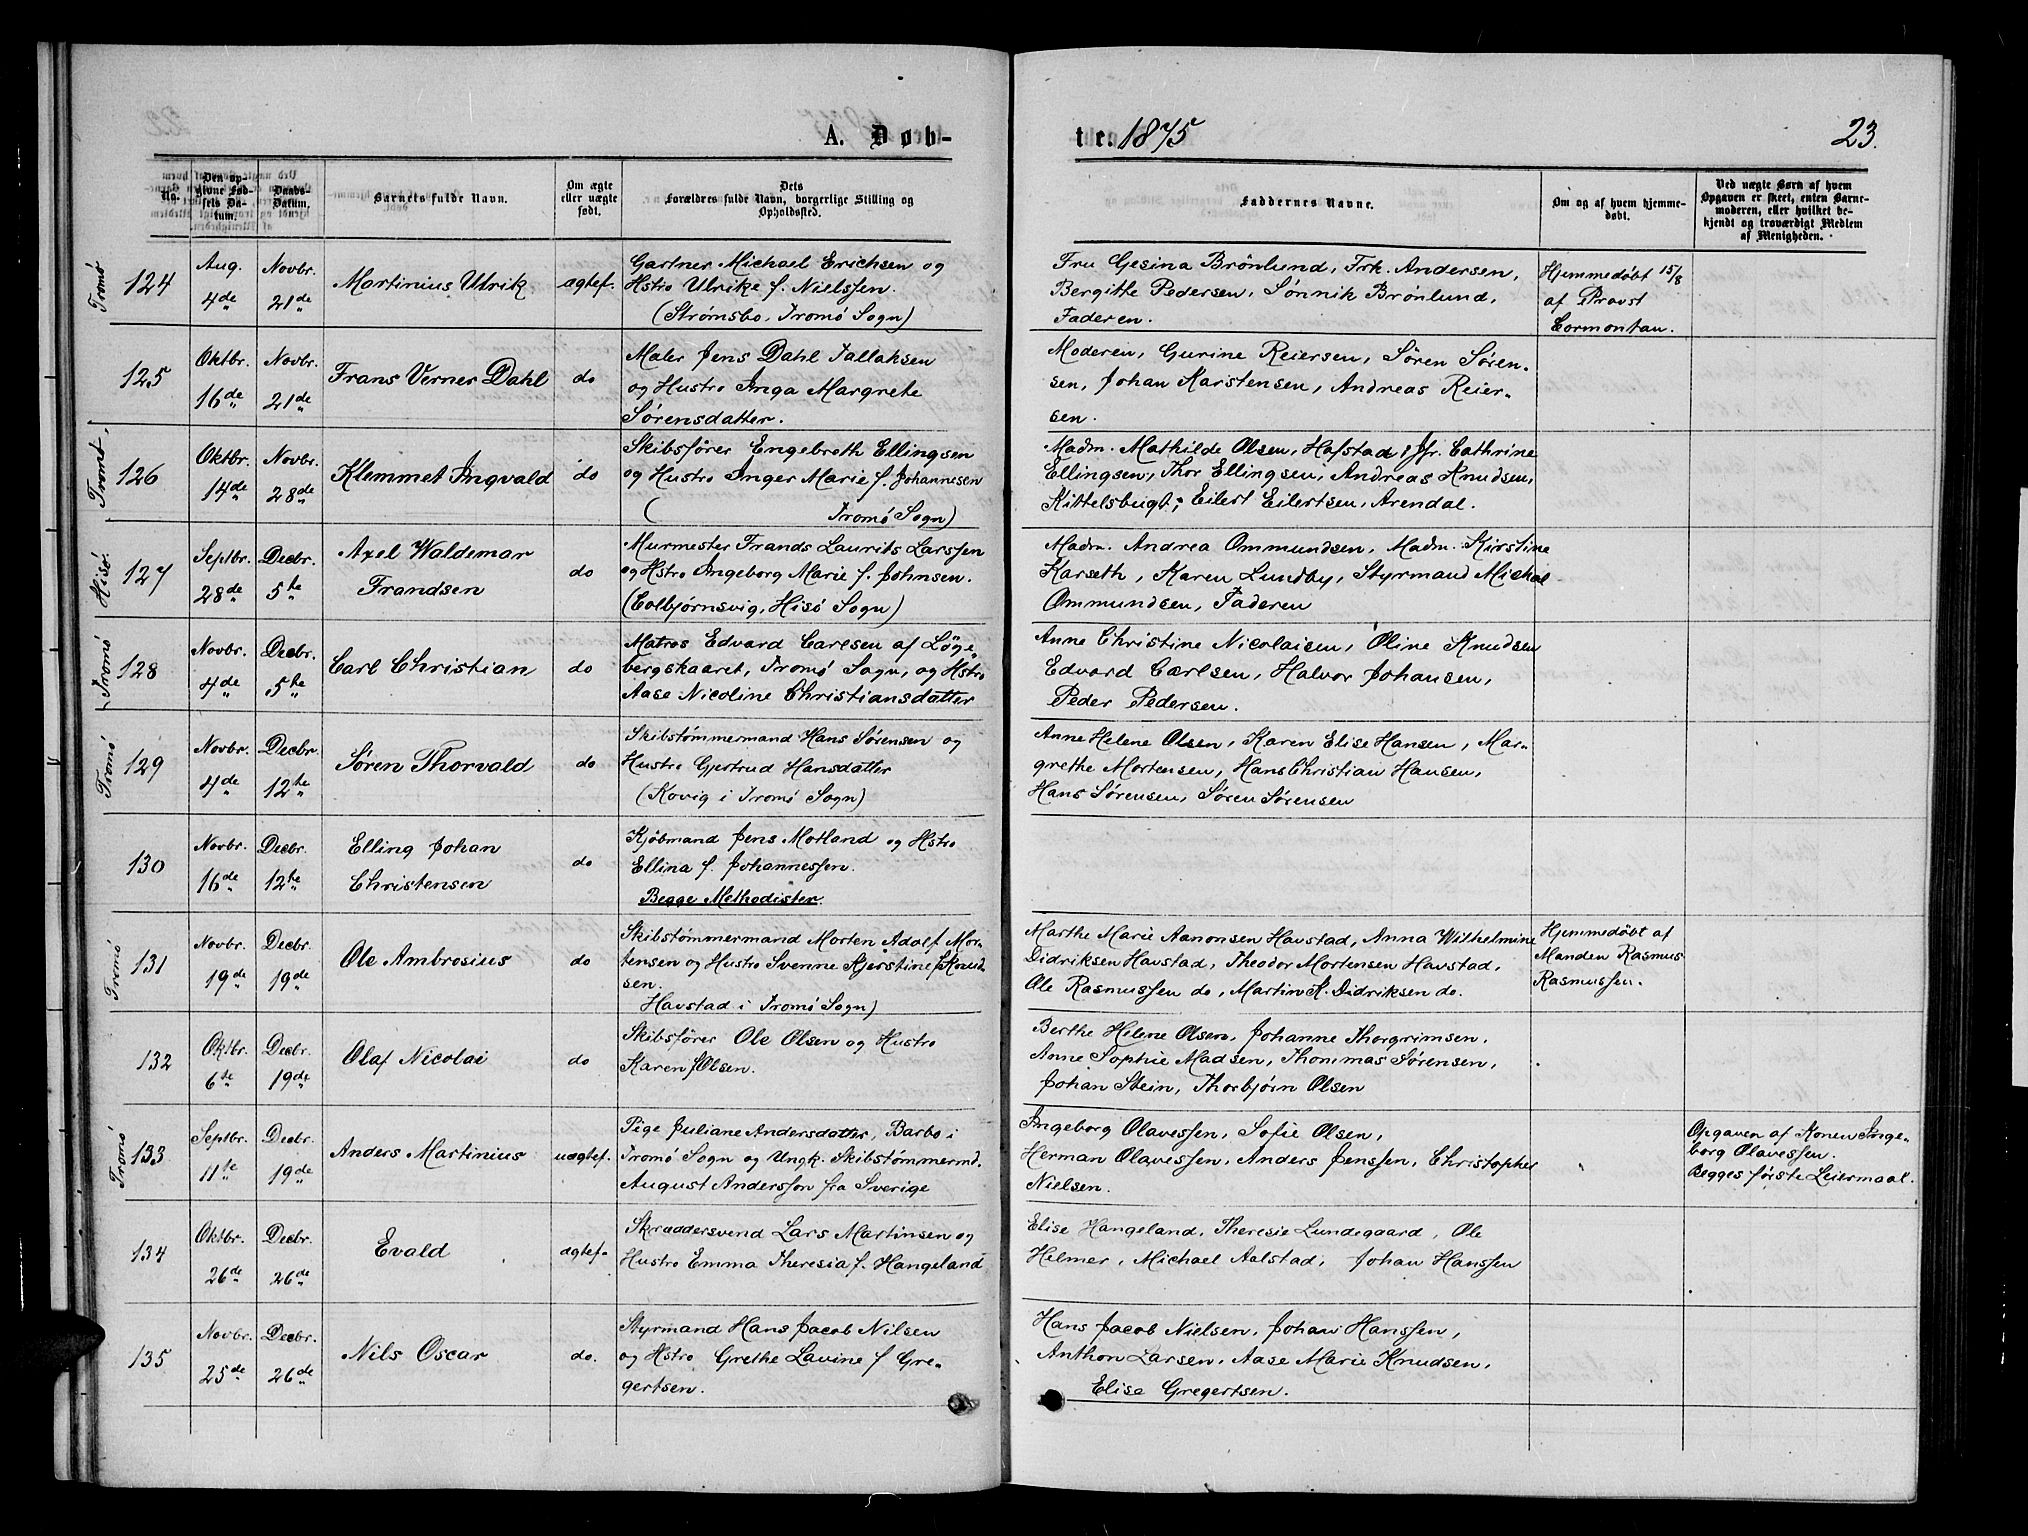 A. Døb-
te. 1875
23.
No.
Den op-
givne Fød-
sels Da-
tum.
Daabs-
Datum.
Barnets fulde Navn.
Om ægte
eller uægte
født.
Dets
Forældres fulde Navn, borgerlige Stilling og
Opholdssted.
Faddernes Navne.
Om og af hvem hjemme-
døbt.
Ved uægte Børn af hvem
Opgaven er skeet, enten Barne-
moderen, eller hvilket be-
kjendt og troværdigt Medlem
af Menigheden.
Tromø
124
Aug.
4de
Novbr.
21de
Martinius Ulrik
ægtef.
Gartner Michael Erichsen og
Hstro Ulrike f. Nielssen.
(Strømsbo, Tromø Sogn)
Fru Gesina Brönlund, Frk. Andersen,
Bergitte Pedersen, Sønnik Brönlund,
Faderen.
Hjemmedøbt 15/8
af Provst
Cormontan.
125
Oktbr.
16de
Novbr.
21de
Frans Verner Dahl
do
Maler Jens Dahl Tallaksen
og Hustro Inga Margrete
Sørensdatter.
Moderen, Gurine Reiersen, Søren Søren-
sen, Johan Karstensen, Andreas Reier-
sen.
Tromø.
126
Oktbr.
14de
Novbr.
28de
Klemmet Ingvald
do
Skibsfører Engebreth Ellingsen
og Hustro Inger Marie f. Johannesen
( Tromø Sogn)
Madm. Mathilde Olsen, Hafstad, Jfr. Cathrine
Ellingsen, Thor Ellingsen, Andreas Knudsen,
Kittelsbugt, Eilert Eilertsen, Arendal.
Hisø.
127
Septbr.
28de
Decbr.
5te
Axel Waldemar
Frandsen
do
Murmester Frands Laurits Larssen
og Hstro Ingeborg Marie f. Johnsen.
(Colbjørnsvig, Hisø Sogn)
Madm. Andrea Ommundsen, Madm. Kirstine
Karseth, Karen Lundby, Styrmand Michal
Ommundsen, Faderen
Tromø
128
Novbr.
4de
Decbr.
5te
Carl Christian
do
Matros Edvard Carlsen af Løge-
bergskaaret, Tromø Sogn, og Hstro
Aase Nicoline Christiansdatter
Anne Christine Nicolaisen, Oline Knudsen
Edvard Carlsen, Halvor Johansen,
Peder Pedersen.
Tromø
129
Novbr.
4de
Decbr.
12te
Søren Thorvald
do
Skibstømmermand Hans Sørensen og
Hustro Gjertrud Hansdatter
(Kovig i Tromø Sogn)
Anne Helene Olsen, Karen Elise Hansen, Mar-
grethe Mortensen, Hans Christian Hansen,
Hans Sørensen, Søren Sørensen
130
Novbr.
16de
Decbr.
12te
Elling Johan
Christensen
do
Kjøbmand Jens Motland og Hstro
Ellina f. Johannessen.
Begge Methodister.
Tromø
131
Novbr.
19de
Decbr.
19de
Ole Ambrosius
do
Skibstømmermand Morten Adolf Mor-
tensen og Hustro Svenne Kjerstine f. Knud-
sen.
Havstad i Tromø Sogn)
Marthe Marie Aanonsen Havstad, Anna Wilhelmine
Didriksen Havstad, Theodor Mortensen Havstad,
Ole Rasmussen do, Martin K. Didriksen do.
Hjemmedøbt af
Manden Rasmus
Rasmussen.
132
Oktbr.
6te
Decbr.
19de
Olaf Nicolai
do
Skibsfører Ole Olsen og Hustro
Karen f. Olsen.
Berthe Helene Olsen, Johanne Thorgrimsen,
Anne Sophie Madsen, Thommas Sørensen,
Johan Stein, Thorbjørn Olsen
Tromø
133
Septbr.
11te
Decbr.
19de
Anders Martinius
uægtef.
Pige Juliane Andersdatter, Barbo i
Tromø Sogn og Ungk. Skibstømmermd.
August Andersson fra Sverige
Ingeborg Olavessen, Sofie Olsen,
Herman Olavessen, Anders Jenssen, Christopher
Nielsen.
Opgaven af Konen Inge-
borg Olavessen.
Begges første Leiermaal.
134
Oktbr.
26de
Decbr.
26de
Evald
ægtef.
Skræddersvend Lars Martinsen og
Hustro Emma Theresia f. Hangeland
Elise Hangeland, Theresie Lundegaard, Ole
Helmer, Michael Aalstad, Johan Hanssen
135
Novbr.
25de
Decbr.
26de
Nils Oscar
do.
Styrmand Hans Jacob Nilsen
og Hstro Grethe Lavine f Gre-
gertsen.
Hans Jacob Nielsen, Johan Hanssen,
Anthon Larsen, Aase Marie Knudsen,
Elise Gregertsen.